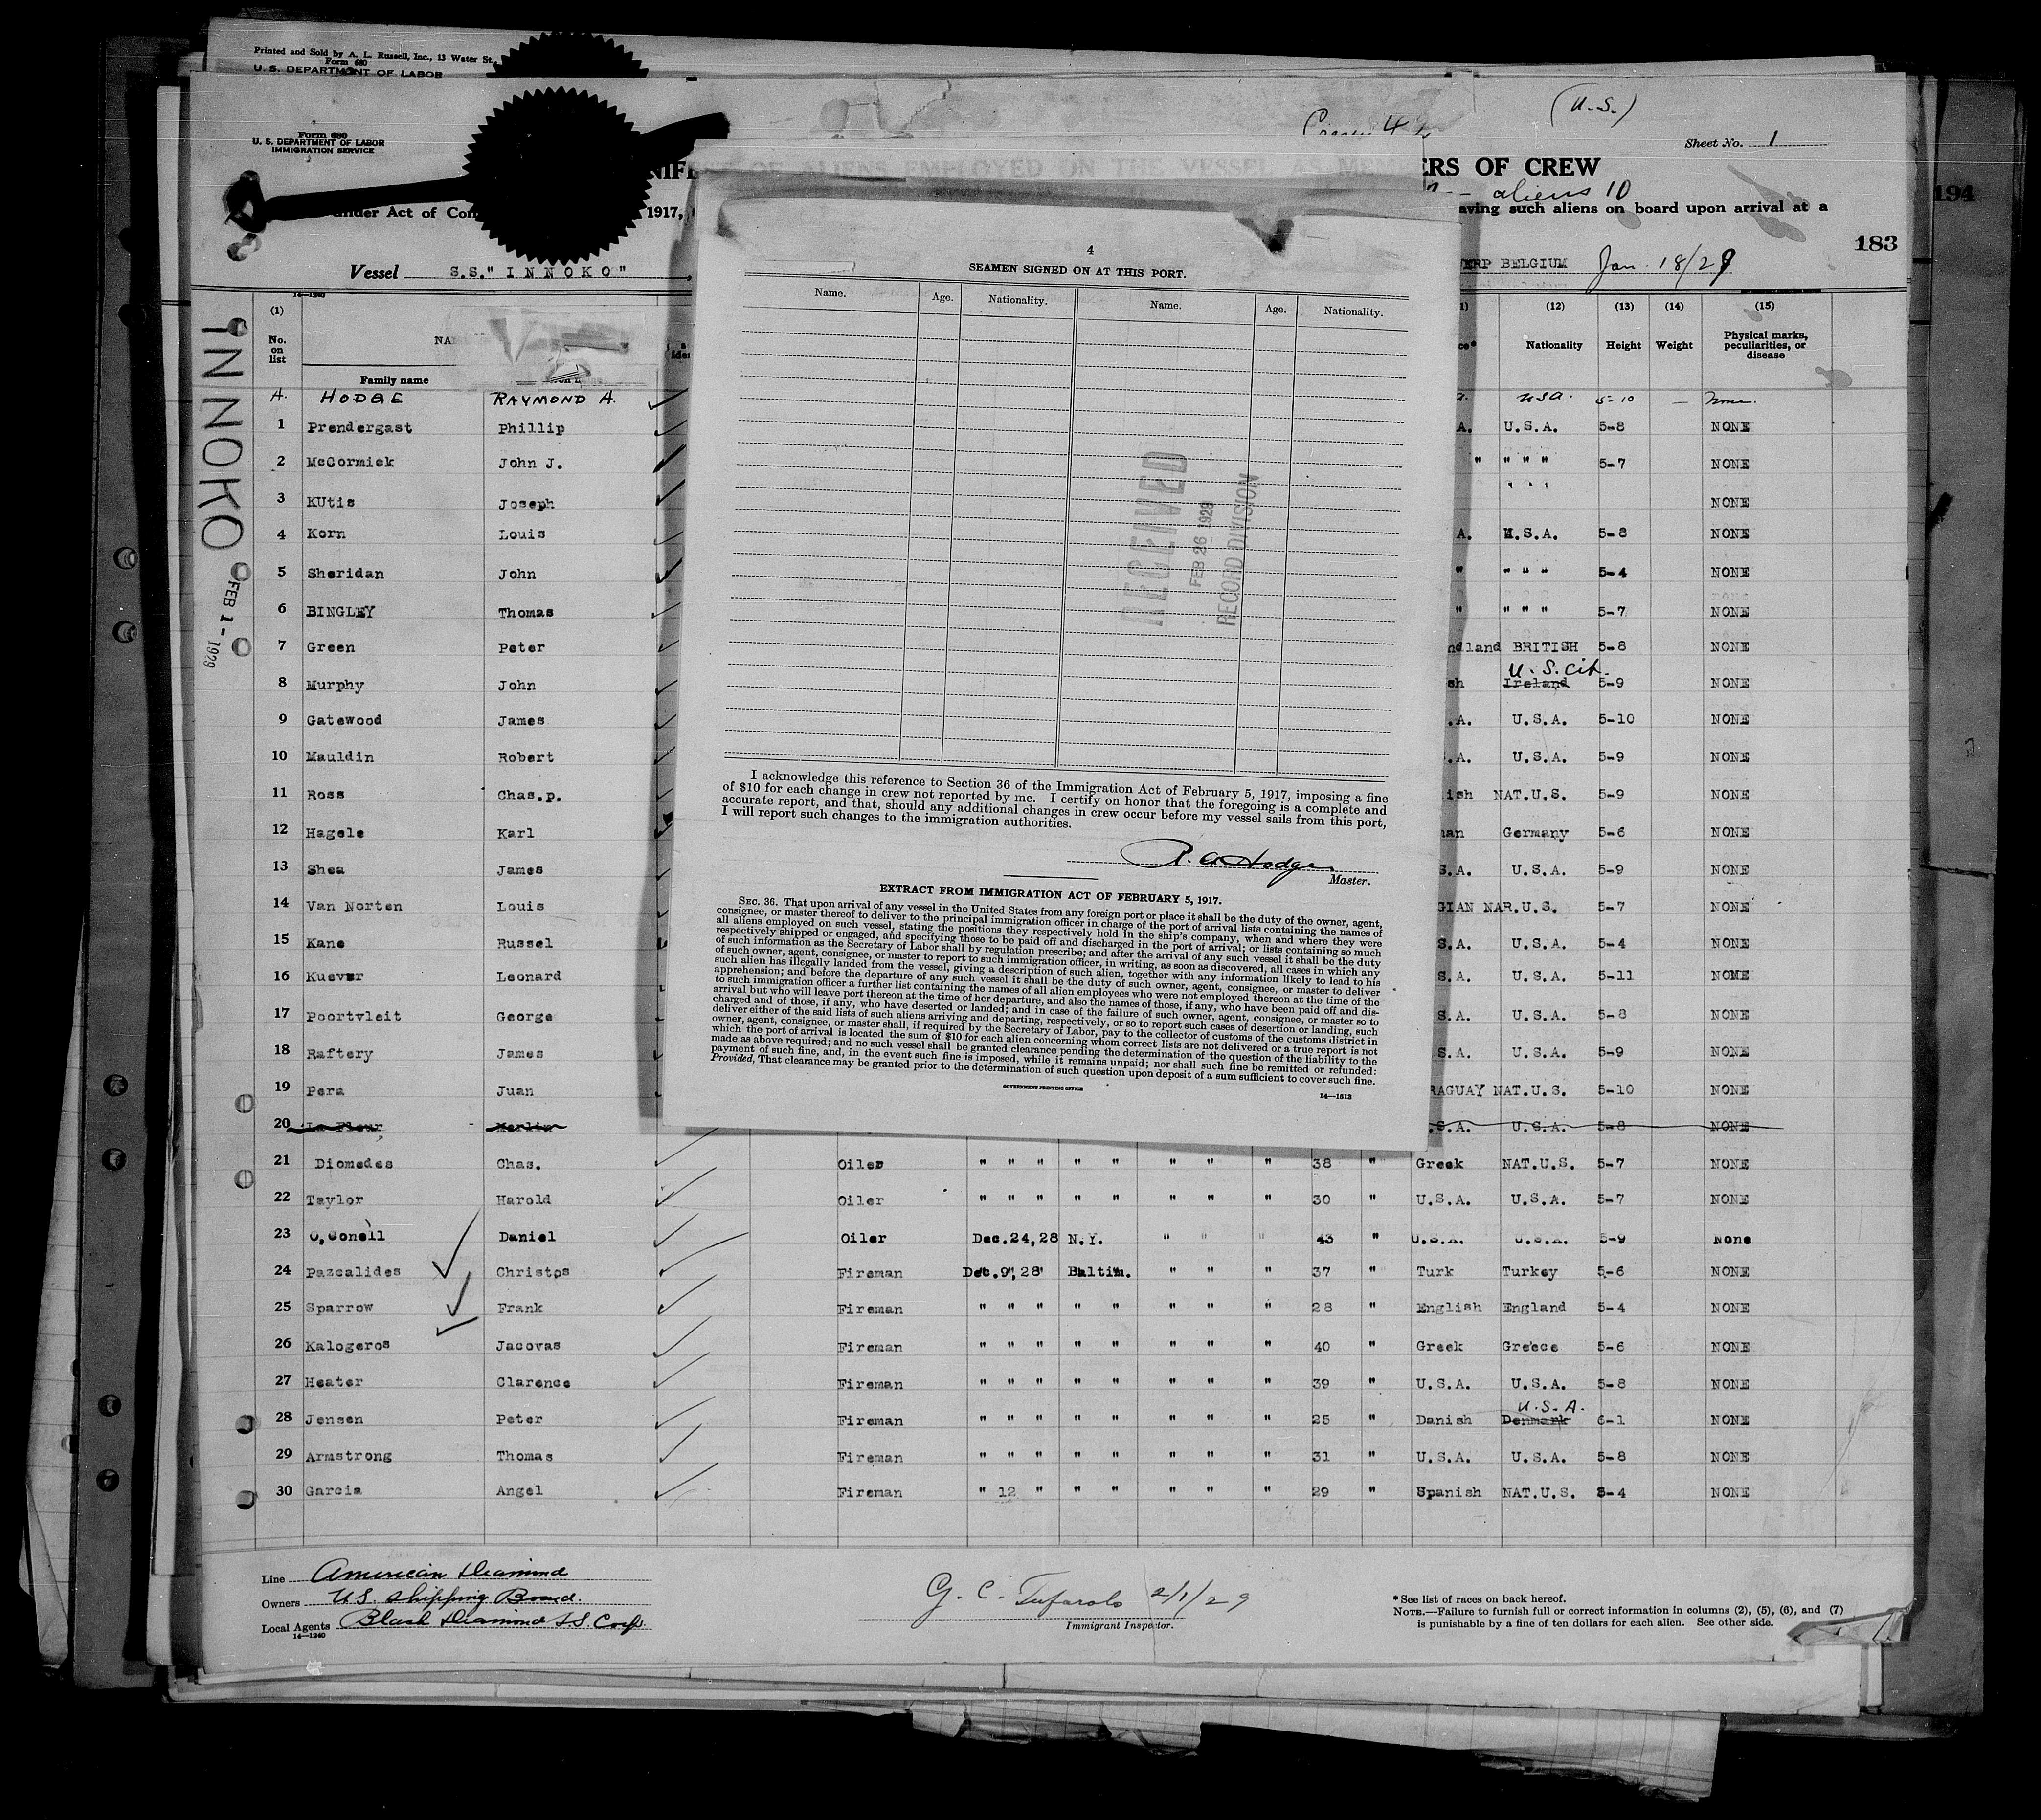 Printed and Sold by A. L. Russell, Inc., 13 Water St.,
Form 680
U. S. DEPARTMENT OF LABOR
Form 680
U. S. DEPARTMENT OF LABOR
IMMIGRATION SERVICE
(U.S.)
Sheet No. 1
NIFEST OF ALIENS EMPLOYED ON THE VESSEL AS MEMBERS OF CREW
aliens 10
under Act of Con 1917, aving such aliens on board upon arrival at a
194
183
Vessel S.S."INNOKO" ERP BELGIUM Jan. 18/29
14—1240
(1) (12) (13) (14) (15)
No. on list NA Nationality Height Weight Physical marks, peculiarities, or disease
Family name
INNOKO
FEB 1 - 1929
A. HODGE RAYMOND A. USA. 5-10 — None.
1 Prendergast Phillip A. U.S.A. 5-8 NONE
2 McCormick John J. " " " " 5-7 NONE
3 KUtis Joseph NONE
4 Korn Louis A. U.S.A. 5-8 NONE
5 Sheridan John " " " " 5-4 NONE
6 BINGLEY Thomas " " " " 5-7 NONE
7 Green Peter ndland BRITISH 5-8 NONE
8 Murphy John sh Ireland U.S. Cit. 5-9 NONE
9 Gatewood James .A. U.S.A. 5-10 NONE
10 Mauldin Robert .A. U.S.A. 5-9 NONE
11 Ross Chas.p. ish NAT.U.S. 5-9 NONE
12 Hagele Karl man Germany 5-6 NONE
13 Shea James S.A. U.S.A. 5-9 NONE
14 Van Norten Louis GIAN NAR.U.S. 5-7 NONE
15 Kane Russel S.A. U.S.A. 5-4 NONE
16 Kuever Leonard S.A. U.S.A. 5-11 NONE
17 Poortvleit George S.A. U.S.A. 5-8 NONE
18 Raftery James S.A. U.S.A. 5-9 NONE
19 Pera Juan RAGUAY NAT.U.S. 5-10 NONE
20 La Fleur Merlin .S.A. U.S.A. 5-8 NONE
21 Diomedes Chas. Oiler " " " " " " " " 38 " Greek NAT.U.S. 5-7 NONE
22 Taylor Harold Oiler " " " " " " " " 30 " U.S.A. U.S.A. 5-7 NONE
23 O,Conell Daniel Oiler Dec.24,28 N.Y. " " " 43 " U.S.A. U.S.A. 5-9 None
24 Pazcalides Christos Fireman Dec.9,28 Baltim. " " " 37 " Turk Turkey 5-6 NONE
25 Sparrow Frank Fireman " " " " " " " " 28 " English England 5-4 NONE
26 Kalogeros Jacovas Fireman " " " " " " " " 40 " Greek Greece 5-6 NONE
27 Heater Clarence Fireman " " " " " " " " 39 " U.S.A. U.S.A. 5-8 NONE
28 Jensen Peter Fireman " " " " " " " " 25 " Danish Denmark U.S.A. 6-1 NONE
29 Armstrong Thomas Fireman " " " " " " " " 31 " U.S.A. U.S.A. 5-8 NONE
30 Garcia Angel Fireman " 12 " " " " " " 29 " Spanish NAT.U.S. 5-4 NONE
4
SEAMEN SIGNED ON AT THIS PORT.
Name. Age. Nationality. Name. Age. Nationality.
RECEIVED
FEB 26 1929
RECORD DIVISION
I acknowledge this reference to Section 36 of the Immigration Act of February 5, 1917, imposing a fine
of $10 for each change in crew not reported by me. I certify on honor that the foregoing is a complete and
accurate report, and that, should any additional changes in crew occur before my vessel sails from this port,
I will report such changes to the immigration authorities.
R. A. Hodge
Master.
EXTRACT FROM IMMIGRATION ACT OF FEBRUARY 5, 1917.
SEC. 36. That upon arrival of any vessel in the United States from any foreign port or place it shall be the duty of the owner, agent,
consignee, or master thereof to deliver to the principal immigration officer in charge of the port of arrival lists containing the names of
all aliens employed on such vessel, stating the positions they respectively hold in the ship's company, when and where they were
respectively shipped or engaged, and specifying those to be paid off and discharged in the port of arrival; or lists containing so much
of such information as the Secretary of Labor shall by regulation prescribe; and after the arrival of any such vessel it shall be the duty
of such owner, agent, consignee, or master to report to such immigration officer, in writing, as soon as discovered, all cases in which any
such alien has illegally landed from the vessel, giving a description of such alien, together with any information likely to lead to his
apprehension; and before the departure of any such vessel it shall be the duty of such owner, agent, consignee, or master to deliver
to such immigration officer a further list containing the names of all alien employees who were not employed thereon at the time of the
arrival but who will leave port thereon at the time of her departure, and also the names of those, if any, who have been paid off and dis-
charged and of those, if any, who have deserted or landed; and in case of the failure of such owner, agent, consignee, or master so to
deliver either of the said lists of such aliens arriving and departing, respectively, or so to report such cases of desertion or landing, such
owner, agent, consignee, or master shall, if required by the Secretary of Labor, pay to the collector of customs of the customs district in
which the port of arrival is located the sum of $10 for each alien concerning whom correct lists are not delivered or a true report is not
made as above required; and no such vessel shall be granted clearance pending the determination of the question of the liability to the
payment of such fine, and, in the event such fine is imposed, while it remains unpaid; nor shall such fine be remitted or refunded:
Provided, That clearance may be granted prior to the determination of such question upon deposit of a sum sufficient to cover such fine.
GOVERNMENT PRINTING OFFICE
14—1613
Line American Diamond
Owners U.S. Shipping Board.
Local Agents Black Diamond S.S. Corp.
14—1240
G. C. Tufarolo 2/1/29
Immigrant Inspector.
* See list of races on back hereof.
NOTE.—Failure to furnish full or correct information in columns (2), (5), (6), and (7)
is punishable by a fine of ten dollars for each alien. See other side.